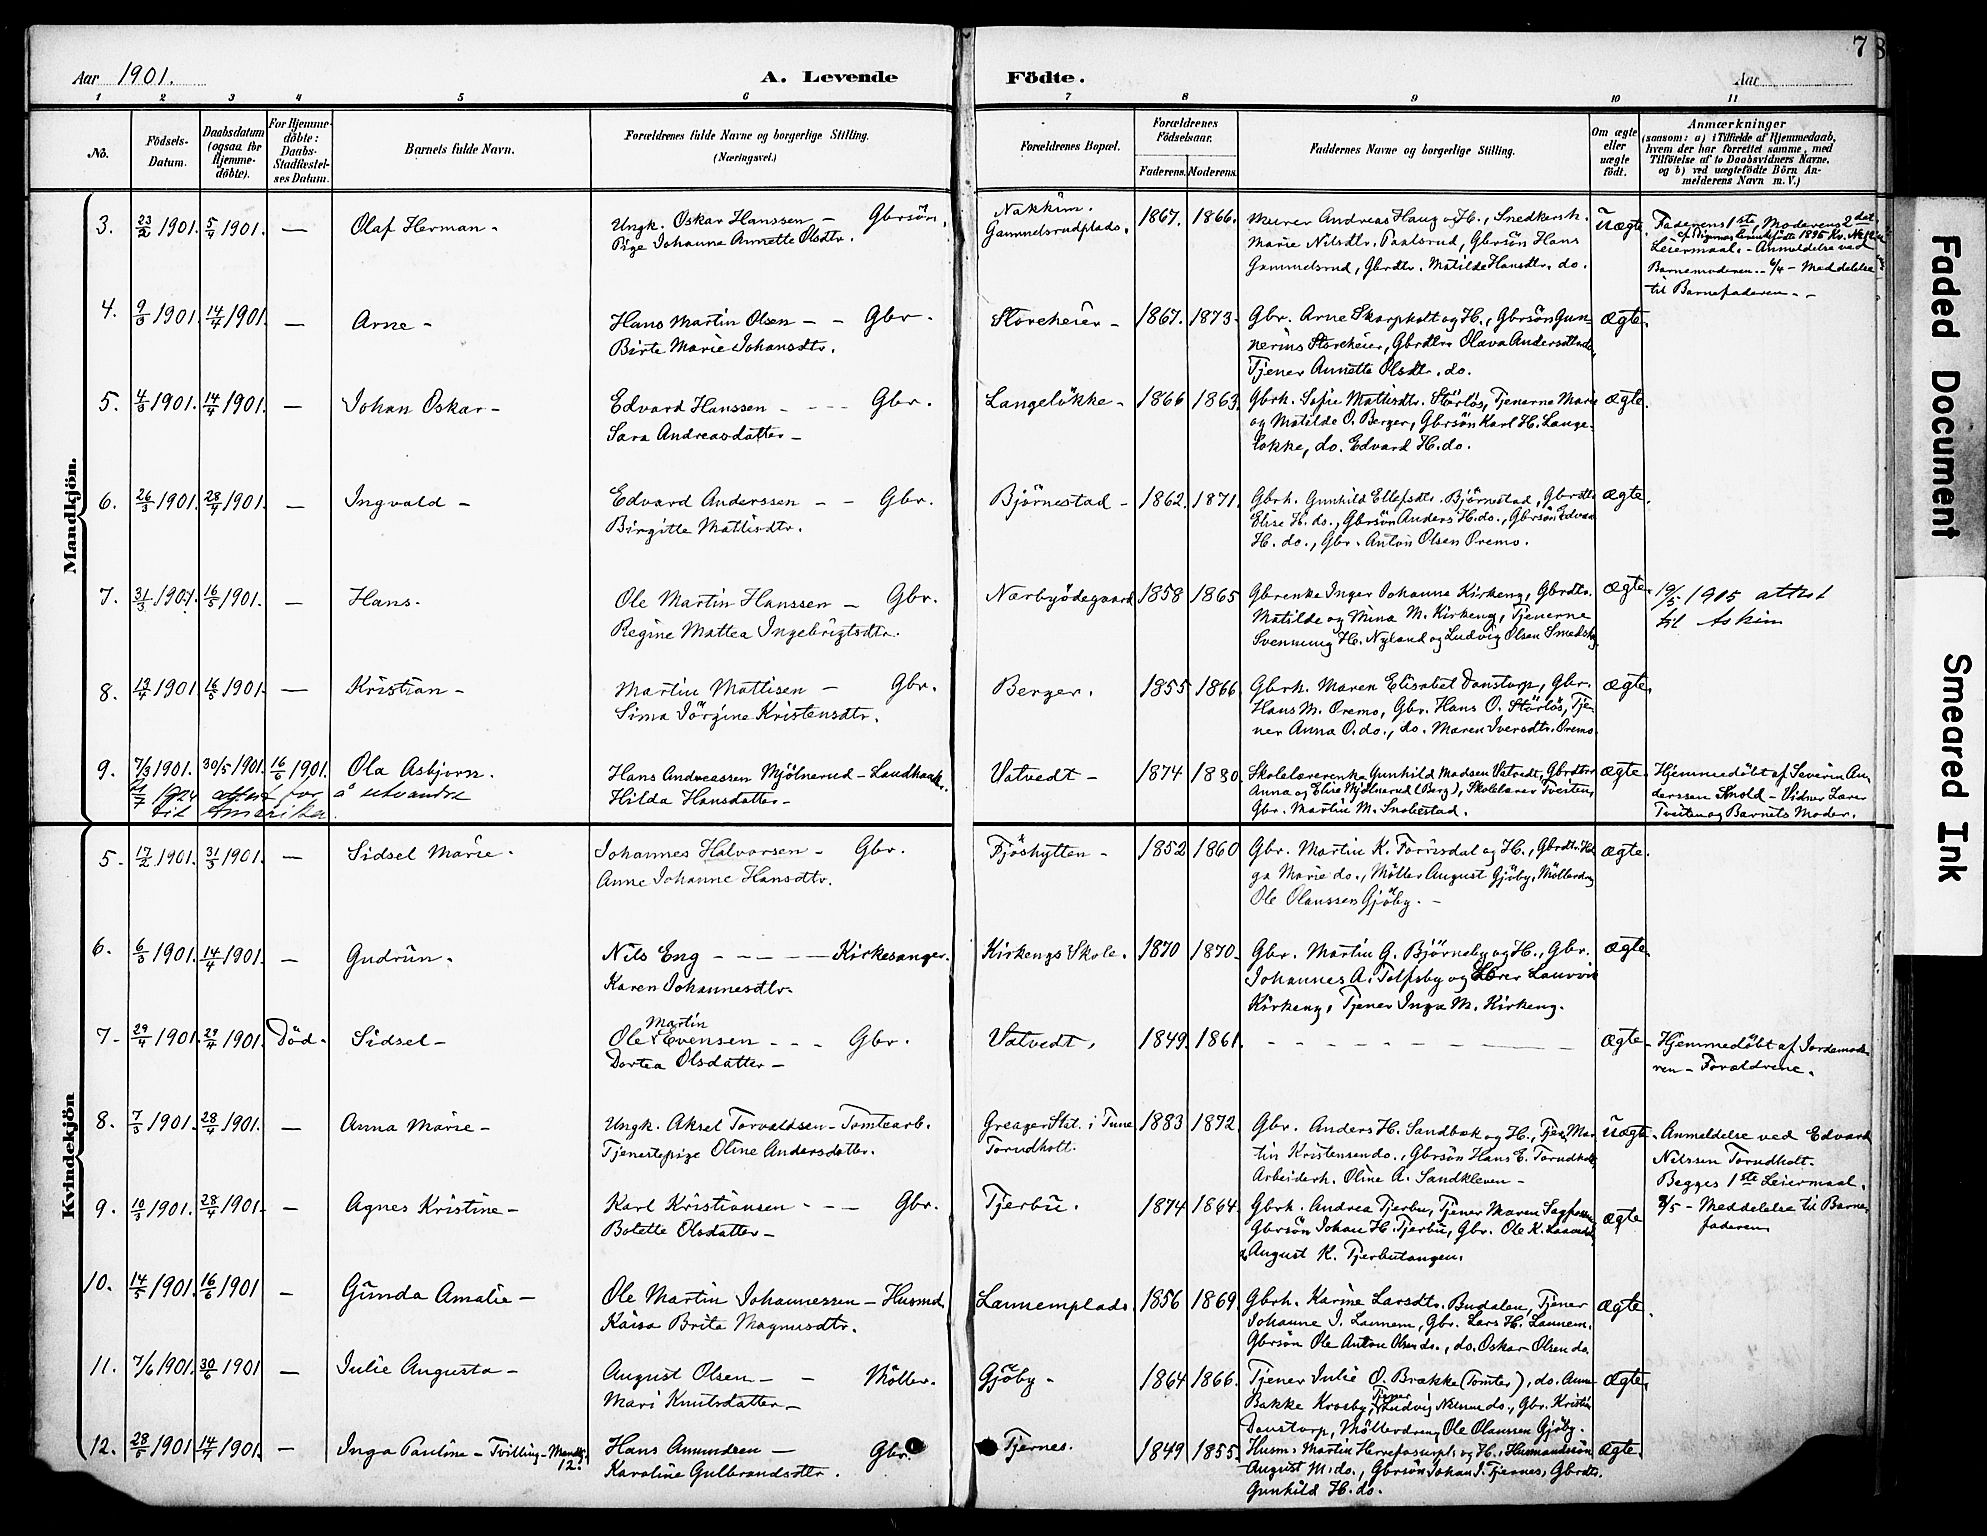 7 8
Aar 1901. A. Levende Födte. Aar
1 2 3 4 5 6 7 8 9 10 11
No.
Födsels-Datum.
Daabsdatum (ogsaa for Hjemme-döbte).
For Hjemme-döbte: Daabs-Stadfæstel-ses Datum.
Barnets fulde Navn.
Forældrenes fulde Navne og borgerlige Stilling. (Næringsvei.)
Forældrenes Bopæl.
Forældrenes Födselsaar.
Faderens. Moderens.
Faddernes Navne og borgerlige Stilling.
Om ægte eller uægte födt.
Anmærkninger
(saasom: a) i Tilfælde af Hjemmedaab, hvem der har forrettet samme, med Tilföielse af to Daabsvidners Navne, og b) ved uægtefödte Börn An-melderens Navn m. V.)
Mandkjön.
3. 23/2 1901. 5/4 1901. — Olaf Herman - Ungk. Oskar Hanssen - Gbrsön. Nakkim. 1867. 1866. Murer Andreas Haug og H., Snedkersk. Uægte. Faderens 1ste, Moderens 2det
Pige Johanne Annette Olsdtr. Gammelsrudplads. Marie Nilsdtr. Paalsrud, Gbrsön Hans Leiermaal. - Anmeldelse ved
Gammelsrud, Gbrdtr. Matilde Hansdtr. do. Barnemoderen. - 6/4 - Meddelelse
til Barnefaderen. -
4. 9/3 1901. 14/4 1901. — Arne - Hans Martin Olsen - - Gbr. Storeheier - 1867. 1873. Gbr. Arne Skarpholt og H., Gbrsön Gun- Ægte.
Birte Marie Johansdtr. nerius Storeheier, Gbrdtr. Olava Andersdtr. do,
Tjener Annette Olsdtr. do.
5. 4/3 1901. 14/4 1901. — Johan Oskar - Edvard Hanssen - - - Gbr. Langelökke - 1866 1863. Gbrk. Sofie Mattisdtr. Störlös, Tjenerne Marie Ægte.
Sara Andreasdatter - og Matilde O. Berger, Gbrsön Karl H. Lange-
lökke, do. Edvard H. do.
6. 26/3 1901. 28/4 1901. — Ingvald - Edvard Anderssen - - Gbr. Björnestad - 1862. 1871. Gbrh. Gunhild Ellefsdtr. Björnestad, Gbrdtr. Ægte.
Birgitte Mattisdtr. Elise H. do., Gbrsön Anders H. do., Gbrsön Edvard
H. do., Gbr. Anton Olsen Oremo.
7. 31/3 1901. 16/5 1901. — Hans. Ole Martin Hanssen - Gbr. Nærbyödegaard 1858 1865 Gbrenke Inger Johanne Kirkeng, Gbrdtr. Ægte. 19/5 1905 attest
Regine Mattea Ingebrigtsdtr. Matilde og Mina M. Kirkeng, Tjenerne til Askim
Svenning H. Nyland og Ludvig Olsen Smedsh.
8. 13/4 1901 16/5 1901. — Kristian - Martin Mattisen - Gbr. Berger. 1855 1866. Gbrh. Maren Elisabet Danstorp, Gbr. Ægte.
Sima Jörgine Kristensdtr. Hans M. Oremo, Gbr. Hans O. Störlös, Tje-
ner Anna O. do., do. Maren Iversdtr. Oremo.
9. 7/3 1901. 30/5 1901. 16/6 1901. Ola Asbjorn. Hans Andreassen Mjölnerud - Landhandl. Vatvedt - 1874 1880. Skolelærerenke Gunhild Madsen Vatvedt, Gbrdtr. Ægte. Hjemmedöbt af Severin An-
1924 attest for å utvandre Hilda Hansdatter - Anna og Elise Mjölnerud (Berg), Skolelærer Tveiten, derssen - Vidner Lærer
til Amerika. Gbr. Martin M. Snolestad. Tveiten og Barnets Moder.
Kvindekjön
5. 17/2 1901. 31/3 1901. — Sidsel Marie. Johannes Halvorsen - Gbr. Fjöshytten - 1852 1860 Gbr. Martin K. Forrisdal og H., Gbrdtr. Hel- Ægte.
Anne Johanne Hansdtr. ga Marie do., Möller August Gjöby, Möllerdreng
Ole Olaussen Gjöby. -
6. 6/3 1901. 14/4 1901. — Gudrun. Nils Eng - - - - Kirkesanger. Kirkengs Skole. 1870 1870. Gbr. Martin G. Björneby og H., Gbr. Ægte.
Karen Johannesdtr. Johannes A. Tolfsby og Lærer
Kirkeng, Tjener Inga M. Kirkeng.
7 - 29/4 1901. 29/4 1901. Död. Sidsel - Ole Martin Evensen - - - Gbr. Vatvedt, 1849. 1861. Ægte - Hjemmedöbt af Jordemode-
Dortea Olsdatter - ren - Forældrene.
8. 7/3 1901. 28/4 1901. — Anna Marie - Ungk. Aksel Torvaldsen - Tomtearb. Greager Stat. i Tune 1883 1872. Gbr. Anders H. Sandbæk og H., Tjen. Mar- Uægte. Anmeldelse ved Edvard
Tjenestepige Oline Andersdatter. Torudholt. tin Kristensen do., Gbrsön Hans E. Torudholt, Nilssen Torudholt.
Arbeiderh. Oline A. Sandkleven - Begges 1ste Leiermaal.
9. 10/3 1901. 28/4 1901. - Agnes Kristine - Karl Kristiansen - - - Gbr. Tjerbu. 1874 1864. Gbrh. Andrea Tjerbu, Tjener Maren Ægte 8/5 - Meddelelse til Barne-
Bolette Olsdatter - Gbrsön Johan H. Tjerbu, Gbr. Ole K. faderen
& August K. Tjerbutangen.
10. 14/5 1901. 16/6 1901 - Gunda Amalie - Ole Martin Johannessen - Husmd. Lannemplads 1856 1869 Gbrh. Karine Larsdtr. Budalen, Tjener Ægte.
Kaisa Brita Magnusdtr. Johanne J. Lannem, Gbr. Lars H. Lannem.
Gbrsön Ole Anton Olsen do., do. Oskar Olsen do.
11. 7/6 1901. 30/6 1901 — Julie Augusta - August Olsen - - Möller. Gjöby - 1864 1866. Tjener Julie O. Brække (Tomter), do. Anne Ægte.
Mari Knutsdatter - Bakke Krosby, Tjener Ludvig Nilssen do., Gbr. Kristian
Danstorp, Möllerdreng Ole Olaussen Gjöby.
12. 28/5 1901 14/7 1901. - Inga Pauline - Tvilling - Mandkj. 12. Hans Amundsen - Gbr. Tjernes. 1849 1855. Husm. Martin og H., Husmandssön Ægte.
Karoline Gulbrandsdtr. August M. do., Gbrsön Johan J. Tjernes, Gbrdtr.
Gunhild H. do.
Faded Document
Smeared Ink